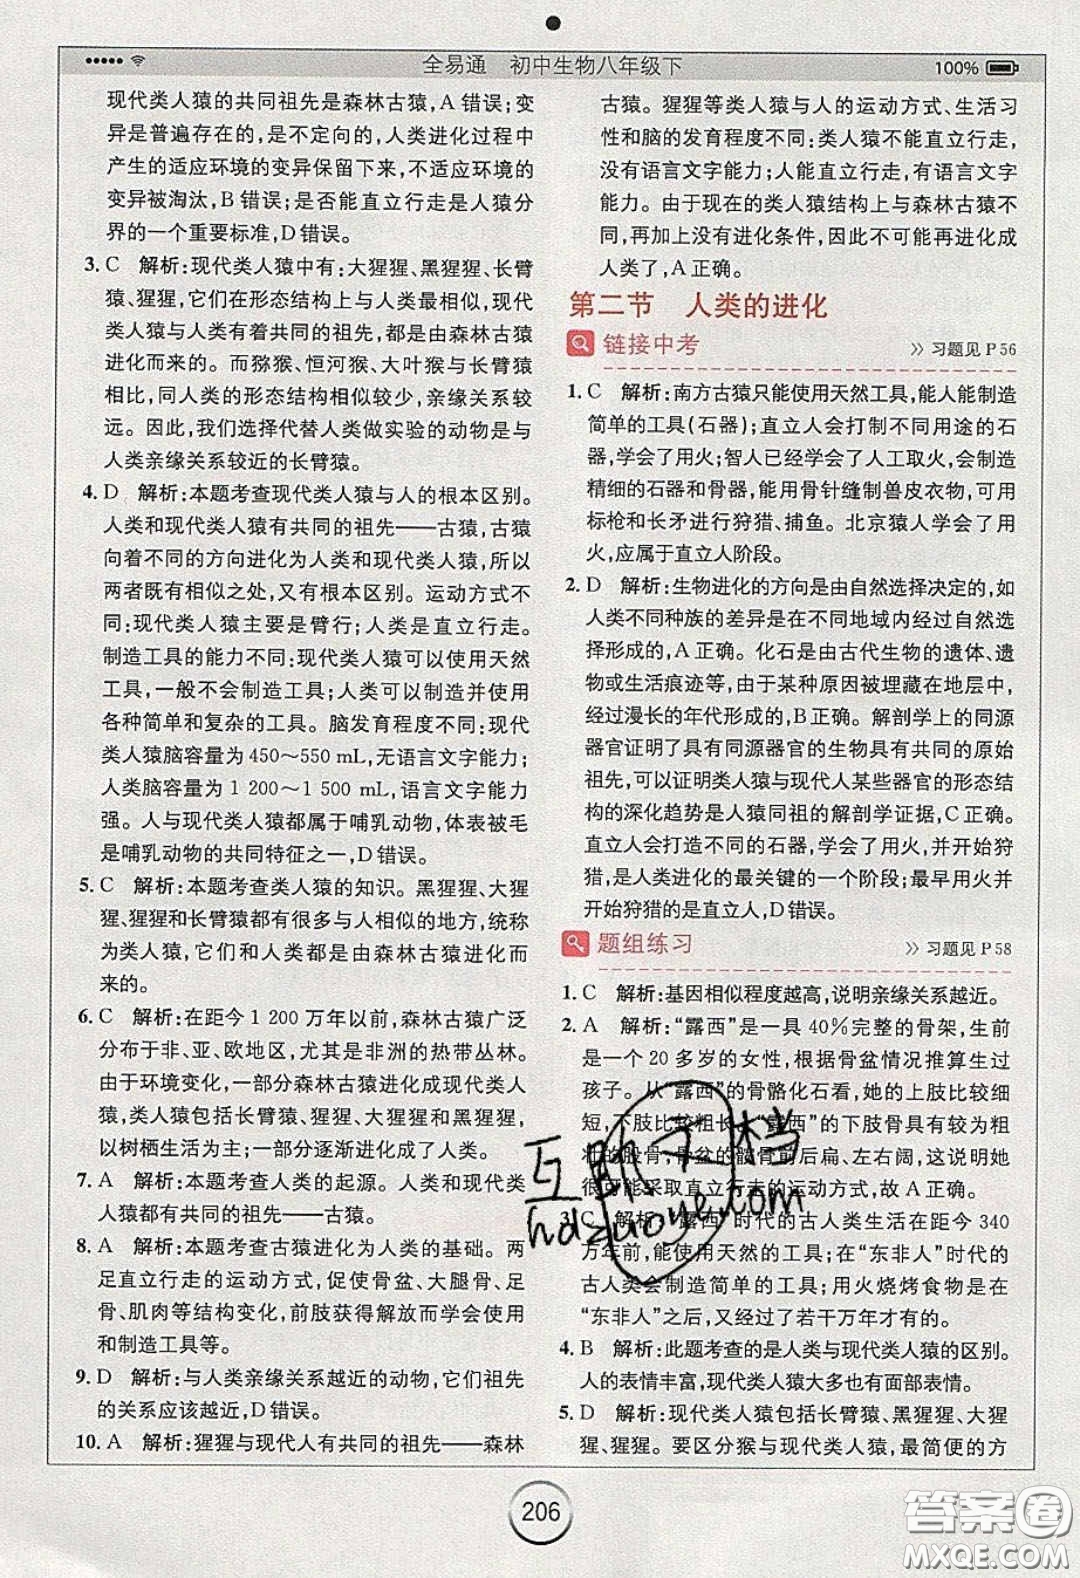 全易通 初中生物八年级下
100%
现代类人猿的共同祖先是森林古猿,A错误;变
异是普遍存在的,是不定向的,人类进化过程中
产生的适应环境的变异保留下来,不适应环境的
变异被淘汰,B错误;是否能直立行走是人猿分
界的一个重要标准,D错误。
3. C 解析:现代类人猿中有:大猩猩、黑猩猩、长臂
猿、猩猩,它们在形态结构上与人类最相似,现代
类人猿与人类有着共同的祖先,都是由森林古猿
进化而来的。而猕猴、恒河猴、大叶猴与长臂猿
相比,同人类的形态结构相似较少,亲缘关系较
远。因此,我们选择代替人类做实验的动物是与
人类亲缘关系较近的长臂猿。
4. D 解析:本题考查现代类人猿与人的根本区别。
人类和现代类人猿有共同的祖先——古猿,古猿
向着不同的方向进化为人类和现代类人猿,所以
两者既有相似之处,又有根本区别。运动方式不
同:现代类人猿主要是臂行;人类是直立行走。
制造工具的能力不同:现代类人猿可以使用天然
工具,一般不会制造工具;人类可以制造并使用
各种简单和复杂的工具。脑发育程度不同:现代
类人猿脑容量为450~550 mL,无语言文字能力;
人类脑容量为1 200~1 500 mL,语言文字能力
强。人与现代类人猿都属于哺乳动物,体表被毛
是哺乳动物的共同特征之一,D错误。
5. C 解析:本题考查类人猿的知识。黑猩猩、大猩
猩、猩猩和长臂猿都有很多与人相似的地方,统称
为类人猿,它们和人类都是由森林古猿进化而
来的。
6. C 解析:在距今1 200万年以前,森林古猿广泛
分布于非、亚、欧地区,尤其是非洲的热带丛林。
由于环境变化,一部分森林古猿进化成现代类人
猿,类人猿包括长臂猿、猩猩、大猩猩和黑猩猩,
以树栖生活为主;一部分逐渐进化成了人类。
7. A 解析:本题考查人类的起源。人类和现代类
人猿都有共同的祖先——古猿。
8. A 解析:本题考查古猿进化为人类的基础。两
足直立行走的运动方式,促使骨盆、大腿骨、足
骨、肌肉等结构变化,前肢获得解放而学会使用
和制造工具等。
9. D 解析:与人类亲缘关系越近的动物,它们祖先
的关系应该越近,D错误。
10. A 解析:猩猩与现代人有共同的祖先——森林
古猿。猩猩等类人猿与人的运动方式、生活习
性和脑的发育程度不同:类人猿不能直立行走,
没有语言文字能力;人能直立行走,有语言文字
能力。由于现在的类人猿结构上与森林古猿不
同,再加上没有进化条件,因此不可能再进化成
人类了,A正确。
第二节 人类的进化
链接中考 》习题见P56
1. C 解析:南方古猿只能使用天然工具,能人能制造
简单的工具(石器);直立人会打制不同用途的石
器,学会了用火;智人已经学会了人工取火,会制造
精细的石器和骨器,能用骨针缝制兽皮衣物,可用
标枪和长矛进行狩猎、捕鱼。北京猿人学会了用
火,应属于直立人阶段。
2. D 解析:生物进化的方向是由自然选择决定的,如
人类不同种族的差异是在不同地域内经过自然选
择形成的,A正确。化石是由古代生物的遗体、遗
物或生活痕迹等,由于某种原因被埋藏在地层中,
经过漫长的年代形成的,B正确。解剖学上的同源
器官证明了具有同源器官的生物具有共同的原始
祖先,可以证明类人猿与现代人某些器官的形态结
构的深化趋势是人猿同祖的解剖学证据,C正确。
直立人会打造不同的石器,学会了用火,并开始狩
猎,是人类进化的最关键的一个阶段;最早用火并
开始狩猎的是直立人,D错误。
题组练习 》习题见P58
1. C 解析:基因相似程度越高,说明亲缘关系越近。
2. A 解析:“露西”是一具40%完整的骨架,生前
是一个20多岁的女性,根据骨盆情况推算生过
孩子。从“露西”的骨骼化石看,她的上肢比较细
短,下肢比较粗长,“露西”的下肢骨具有较为粗
壮的股骨;骨盆的髋骨前后扁、左右阔,这说明她
很可能采取直立行走的运动方式,故A正确。
3. C 解析:“露西”时代的古人类生活在距今340
万年前,能使用天然的工具;在“东非人”时代的
古人类会制造简单的工具;用火烧烤食物是在
“东非人”之后,又经过了若干万年才有的。
4. B 解析:此题考查的是人类与现代类人猿的区别。
人的表情丰富,现代类人猿大多也有面部表情。
5. D 解析:现代类人猿包括长臂猿、黑猩猩、大猩
猩、猩猩。要区分猴与现代类人猿,最简便的方
hdzuoye.com
206
答案圈
MXQE.COM